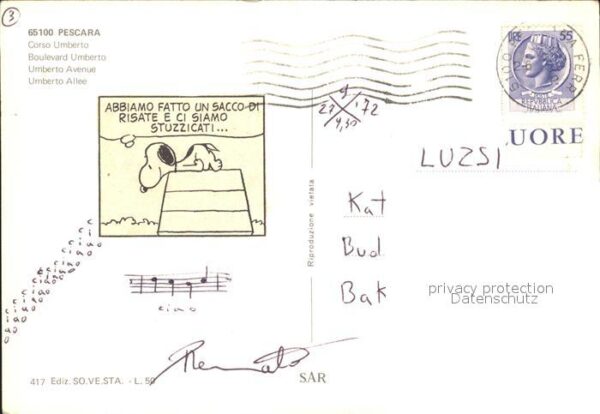 3
65100 PESCARA
Corso Umberto
Boulevard Umberto
Umberto Avenue
Umberto Allee
ABBIAMO FATTO UN SACCO DI
RISATE E CI SIAMO
STUZZICATI...
9
27 '72
9,30
LIRE 55
REPVBBLICA
ITALIANA
UORE
LUZSI
Kat
Bud
Bak
privacy protection
Datenschutz
Riproduzione vietata
ciao
ciao
ciao
ciao
ciao
ciao
ciao
ciao
ciao
Renato
417 Ediz. SO.VE.STA. - L. 50
SAR